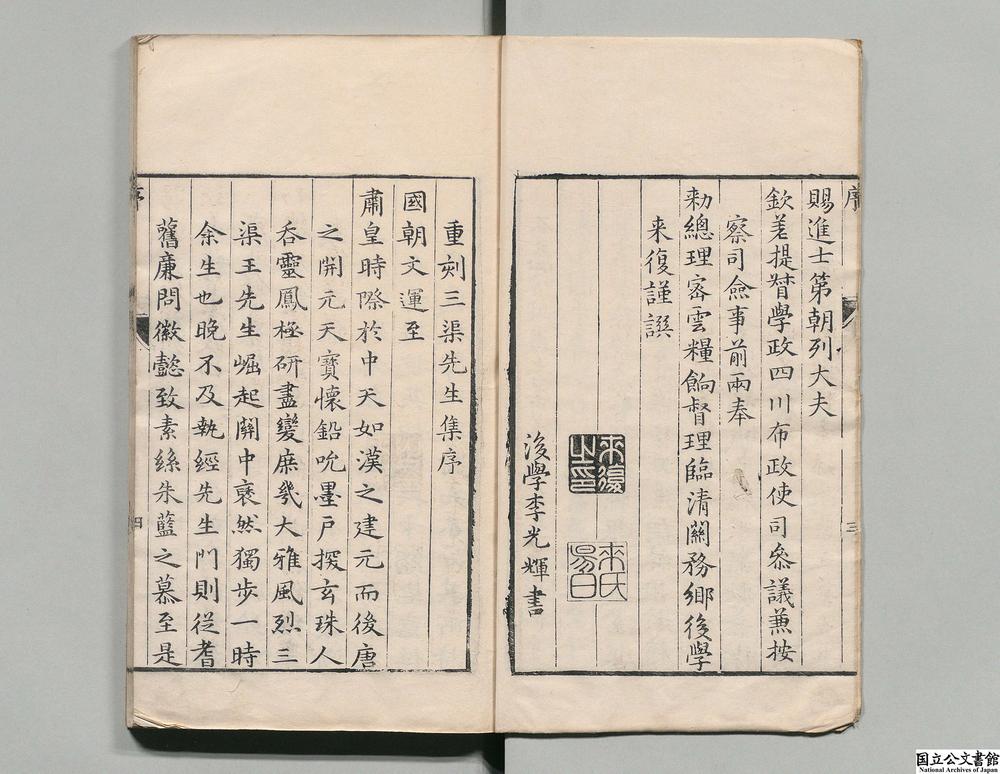 序
賜進士第朝列大夫
欽差提督學政四川布政使司叅議蒹按
察司僉事前兩奉
勑總理密雲糧餉督理臨清關務鄉後學
来復謹譔
来復之印
来氏陽白
後學李光輝書
三
重刻三渠先生集序
國朝文運至
肅皇時際於中天如漢之建元而後唐
之開元天寶懷鉛吮墨戶探玄珠人
吞靈鳳極研盡變庶幾大雅風烈三
渠王先生崛起關中裒然獨步一時
余生也晚不及執經先生門則從耆
舊廉問徽懿致素絲朱藍之慕至是
序
四
国立公文書館
National Archives of Japan